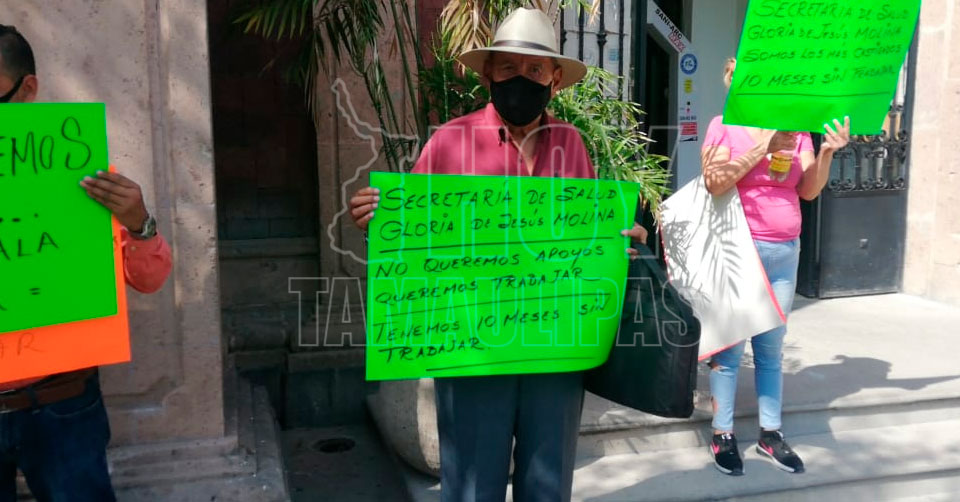 EMOS
ALA
=
AR
SECRETARÍA DE SALUD
GLORIA DE JESÚS MOLINA
NO QUEREMOS APOYOS
QUEREMOS TRADAJAR
TENEMOS 10 MESES SIN
TRADAJAR
SECRETARIA DE SALUD
GLORIA DE JESÚS MOLINA
SOMOS LOS MAS CASTIGADOS
10 MESES SIN TRADAJAR
HOY
TAMAULIPAS